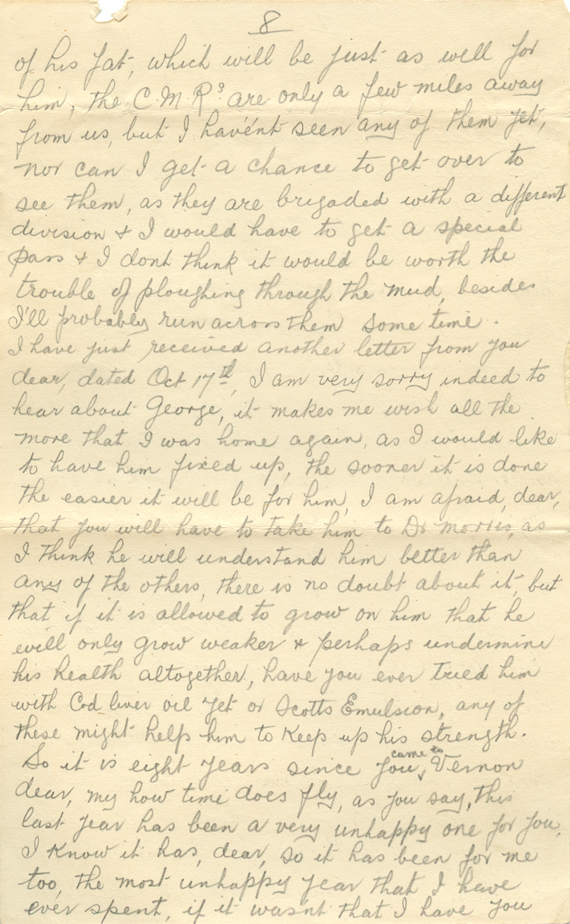 8
of his fat, which will be just as well for
him, the C.M.R's are only a few miles away
from us, but I haven't seen any of them yet,
nor can I get a chance to get over to
see them, as they are brigaded with a different
division & I would have to get a special
pass & I dont think it would be worth the
trouble of ploughing through the mud, besides
I'll probably run across them some time.
I have just received another letter from you
dear, dated Oct 17th, I am very sorry indeed to
hear about George, it makes me wish all the
more that I was home again, as I would like
to have him fixed up, the sooner it is done
the easier it will be for him, I am afraid, dear,
that you will have to take him to Dr Morris, as
I think he will understand him better than
any of the others, there is no doubt about it, but
that if it is allowed to grow on him that he
will only grow weaker & perhaps undermine
his health altogether, have you ever tried him
with Cod liver oil yet or Scotts Emulsion, any of
these might help him to keep up his strength.
So it is eight years since you came to Vernon
dear, my how time does fly, as you say, this
last year has been a very unhappy one for you,
I know it has, dear, so it has been for me
too, the most unhappy year that I have
ever spent, if it wasnt that I have you